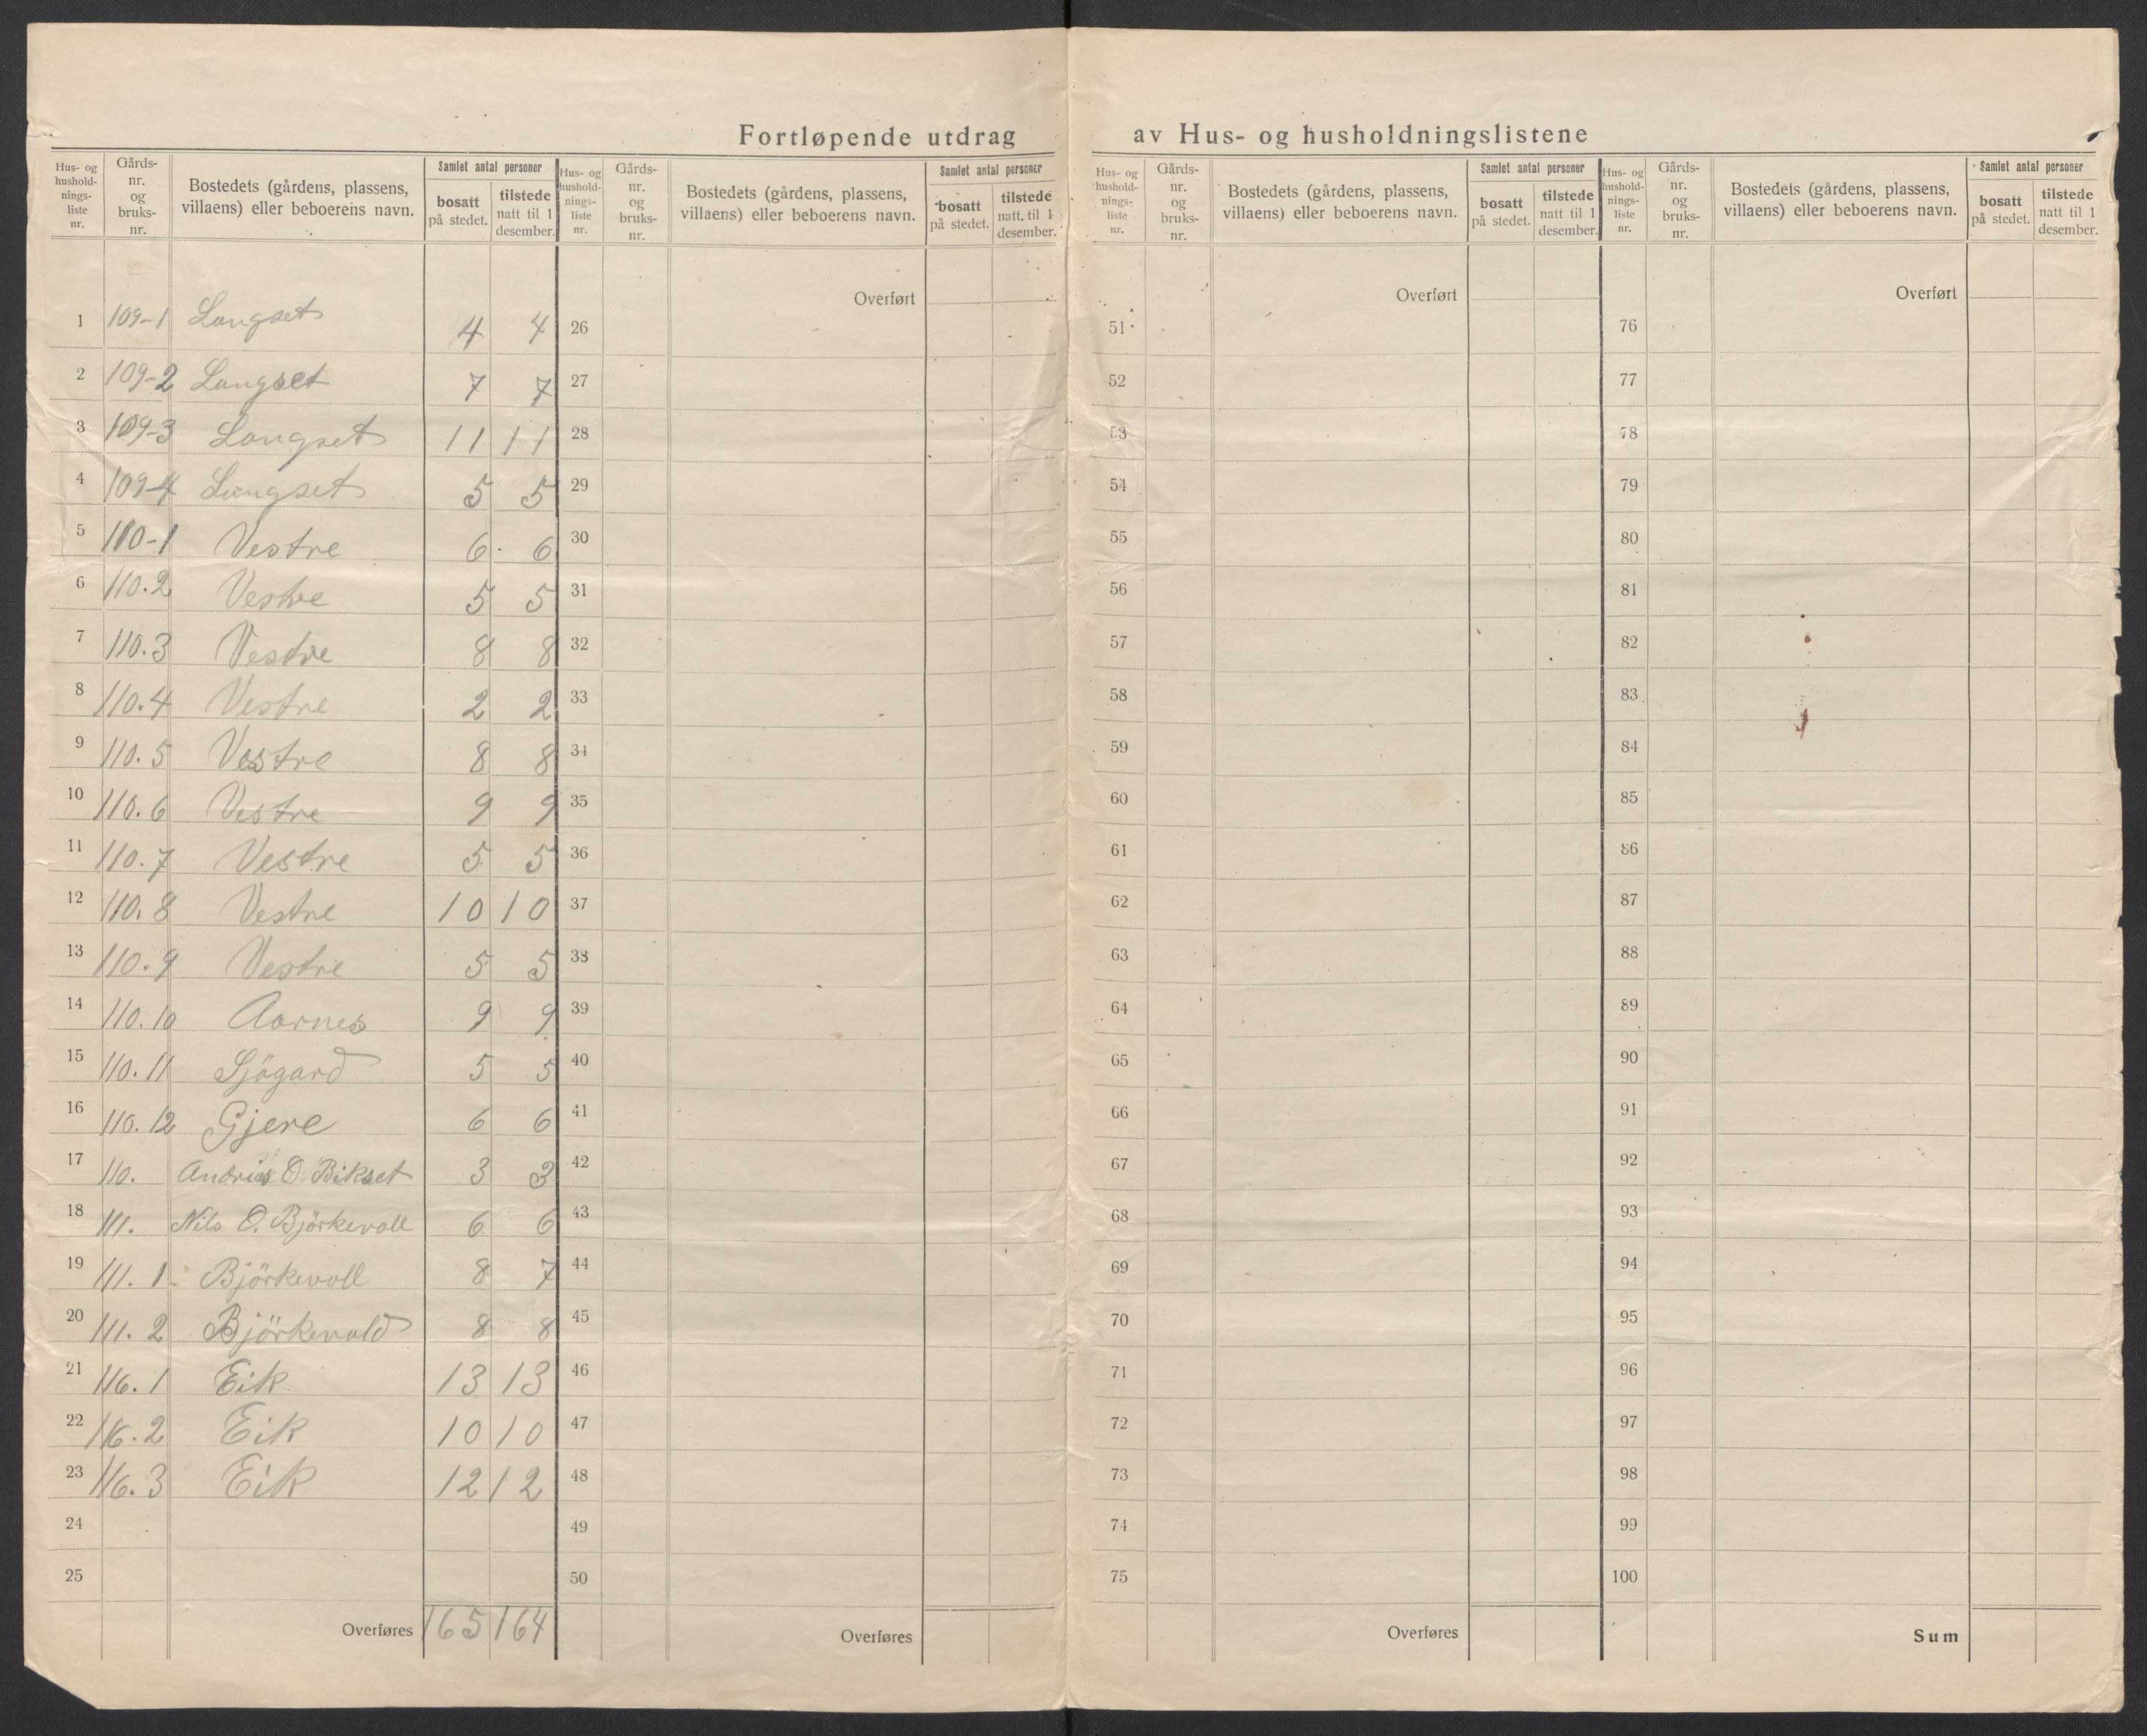 Fortløpende utdrag av Hus- og husholdningslistene
Hus- og hushold-nings-liste nr. Gårds-nr. og bruks-nr. Bostedets (gårdens, plassens, villaens) eller beboerens navn. Samlet antal personer bosatt på stedet. tilstede natt til 1 desember.
Hus- og hushold-nings-liste nr. Gårds-nr. og bruks-nr. Bostedets (gårdens, plassens, villaens) eller beboerens navn. Samlet antal personer bosatt på stedet. tilstede natt til 1 desember.
Hus- og hushold-nings-liste nr. Gårds-nr. og bruks-nr. Bostedets (gårdens, plassens, villaens) eller beboerens navn. Samlet antal personer bosatt på stedet. tilstede natt til 1 desember.
Hus- og hushold-nings-liste nr. Gårds-nr. og bruks-nr. Bostedets (gårdens, plassens, villaens) eller beboerens navn. Samlet antal personer bosatt på stedet. tilstede natt til 1 desember.
Overført Overført Overført
1 109-1 Langset 4 4 26 51 76
2 109-2 Langset 7 7 27 52 77
3 109-3 Langset 11 11 28 53 78
4 109-4 Langset 5 5 29 54 79
5 110-1 Vestre 6 6 30 55 80
6 110.2 Vestre 5 5 31 56 81
7 110.3 Vestre 8 8 32 57 82
8 110.4 Vestre 2 2 33 58 83
9 110.5 Vestre 8 8 34 59 84
10 110.6 Vestre 9 9 35 60 85
11 110.7 Vestre 5 5 36 61 86
12 110.8 Vestre 10 10 37 62 87
13 110.9 Vestre 5 5 38 63 88
14 110.10 Aarnes 9 9 39 64 89
15 110.11 Sjögard 5 5 40 65 90
16 110.12 Gjere 6 6 41 66 91
17 110. Andrias O. Bikset 3 3 42 67 92
18 111. Nils O. Björkevoll 6 6 43 68 93
19 111.1 Björkevoll 8 7 44 69 94
20 111.2 Björkevold 8 8 45 70 95
21 116.1 Eik 13 13 46 71 96
22 116.2 Eik 10 10 47 72 97
23 116.3 Eik 12 12 48 73 98
24 49 74 99
25 50 75 100
Overføres 165 164 Overføres Overføres Sum